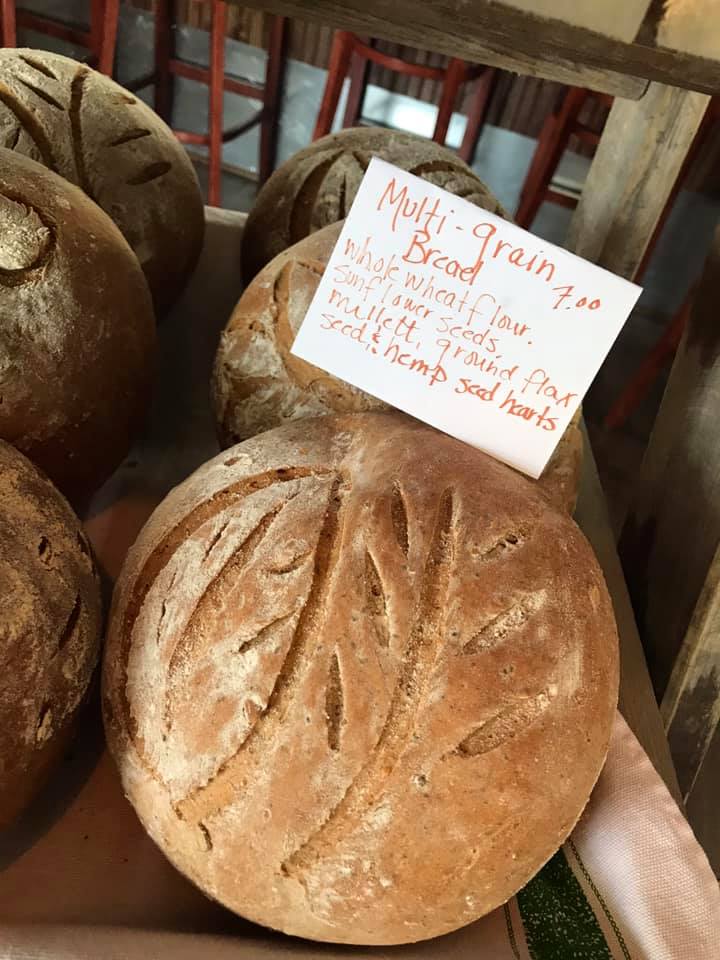 Multi-grain
Bread 7.00
whole wheat flour.
Sunflower seeds.
mullett, ground flax
seed, & hemp seed hearts